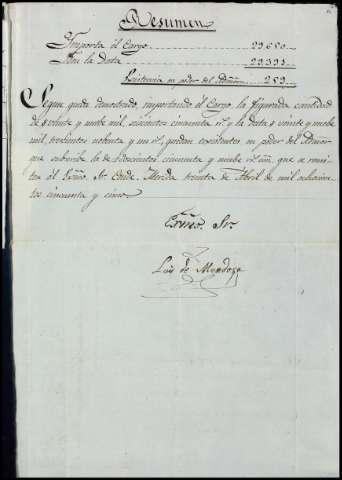 Resumen
Importa el Cargo 29.650.
Idm la Data 29.391.
Existencia en poder del Admor. 259.
Segun queda demostrado, importando el Cargo la figurada cantidad
de veinte y nuebe mil, seiscientos cincuenta rs. y la data veinte y nuebe
mil trescientos nobenta y un rs., quedan existentes en poder del Admor.
que subscribe la de Doscientos cincuenta y nuebe rs. vn. que a remi-
tido al Exmo. Sr. Conde. Merida treinta de Abril de mil ochocien-
tos cincuenta y cinco.
Exmo. Sr.
Luis de Mendoza